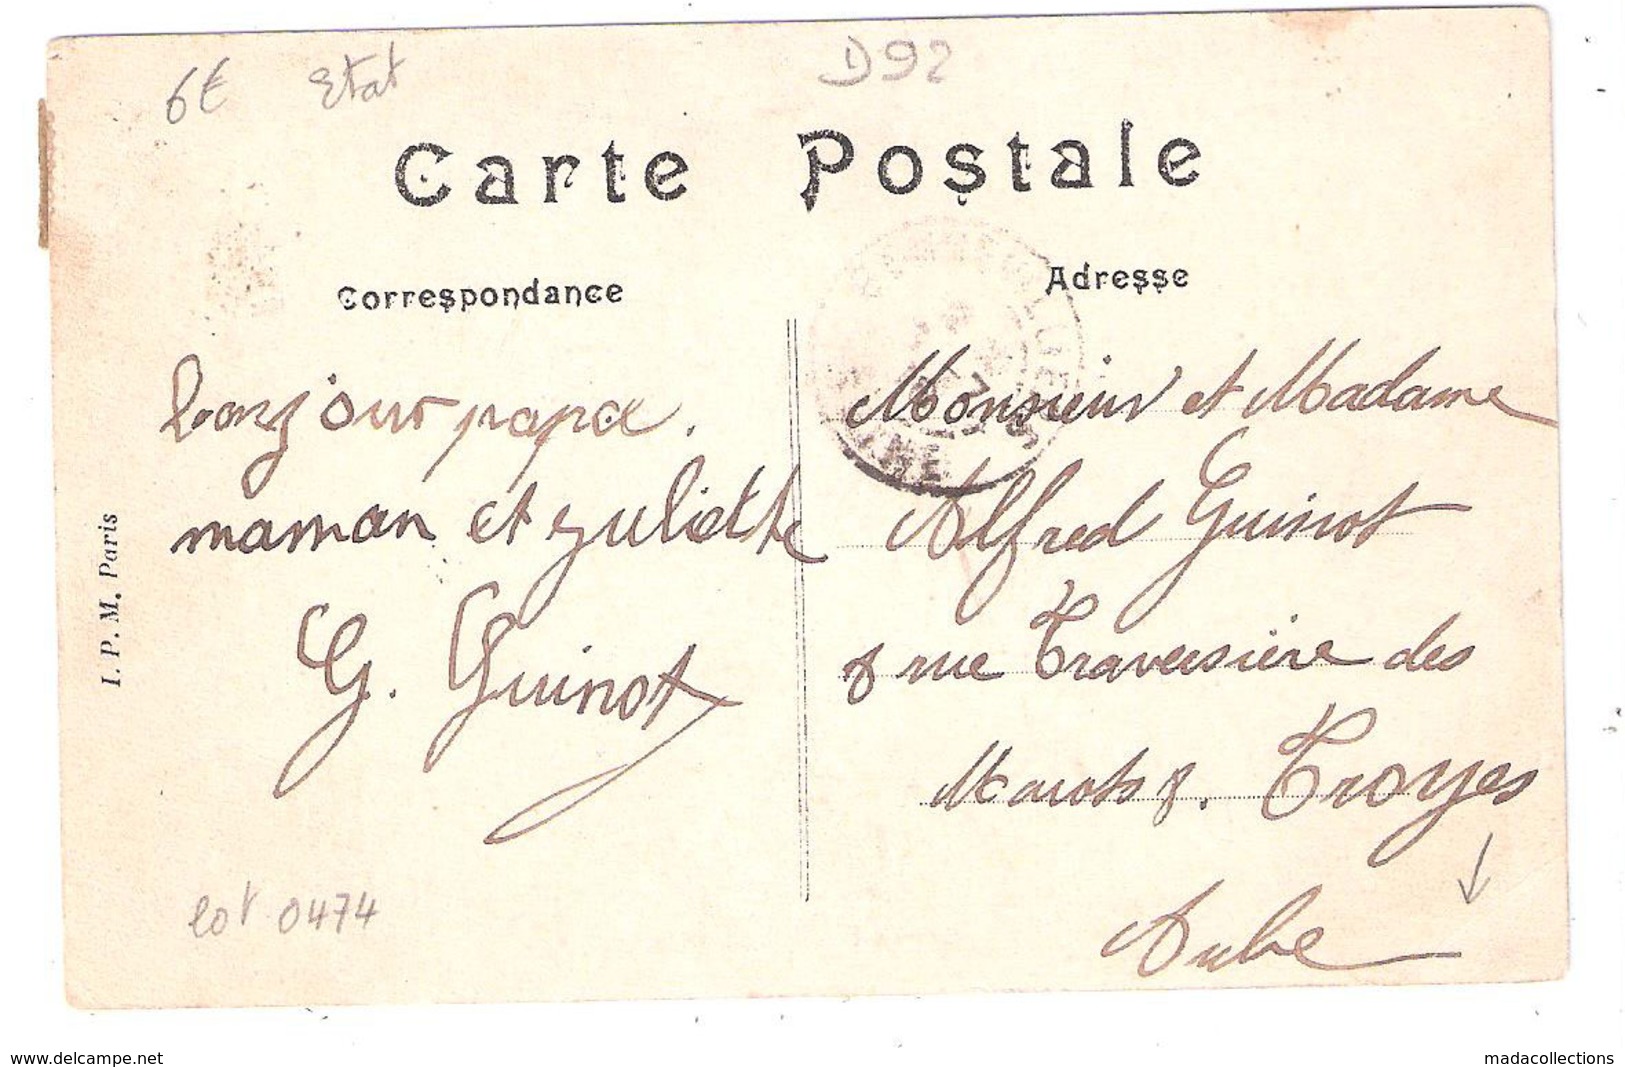 6€ Etat D92
Carte Postale
Correspondance
Bonjour papa.
maman et zuliette
G. Guinot
lot 0474
I. P. M. Paris
Adresse
Monsieur et Madame
Alfred Guinot
8 rue Traversière des
Marots 8. Troyes
Aube
www.delcampe.net
madacollections